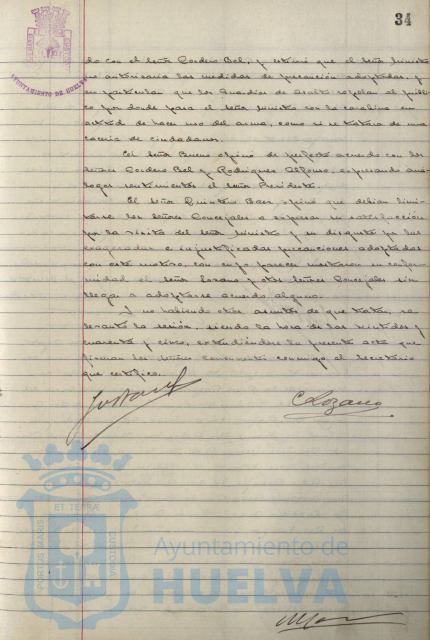 34
AYUNTAMIENTO DE HUELVA
do con el señor Cordero Bel, y estimó que el señor Ministro
no autorizaría las medidas de precaución adoptadas, y
en particular que los Guardias de asalto cogieran al públi
co por donde pasa el señor Ministro con la carabina en
actitud de hacer uso del arma, como si se tratara de una
cacería de ciudadanos.
El señor Bueno opinó de perfecto acuerdo con los
señores Cordero Bel y Rodríguez Alfonso, expresando aná
logos sentimientos el señor Presidente.
El señor Quintero Baez opinó que debían limi
tarse los señores Concejales a expresar su satisfacción
por la visita del señor Ministro y su disgusto por las
exageradas e injustificadas precauciones adoptadas
con este motivo, con cuyo parecer mostraron su confor
midad el señor Lozano y otros señores Concejales sin
llegar a adoptarse acuerdo alguno.
Y no habiendo otros asuntos de que tratar, se
levantó la sesión, siendo la hora de las veintidos y
cuarenta y cinco, extendiéndose la presente acta que
firman los señores conmigo, el Secretario
que certifico.
C Lozano
PORTUS MARIS
ET TERRÆ
CUSTODIA
Ayuntamiento de
HUELVA